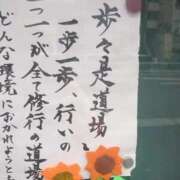 歩々是道場
一歩一歩、行いの
一つ一つが全て修行の道場
どんな環境におかれようとも